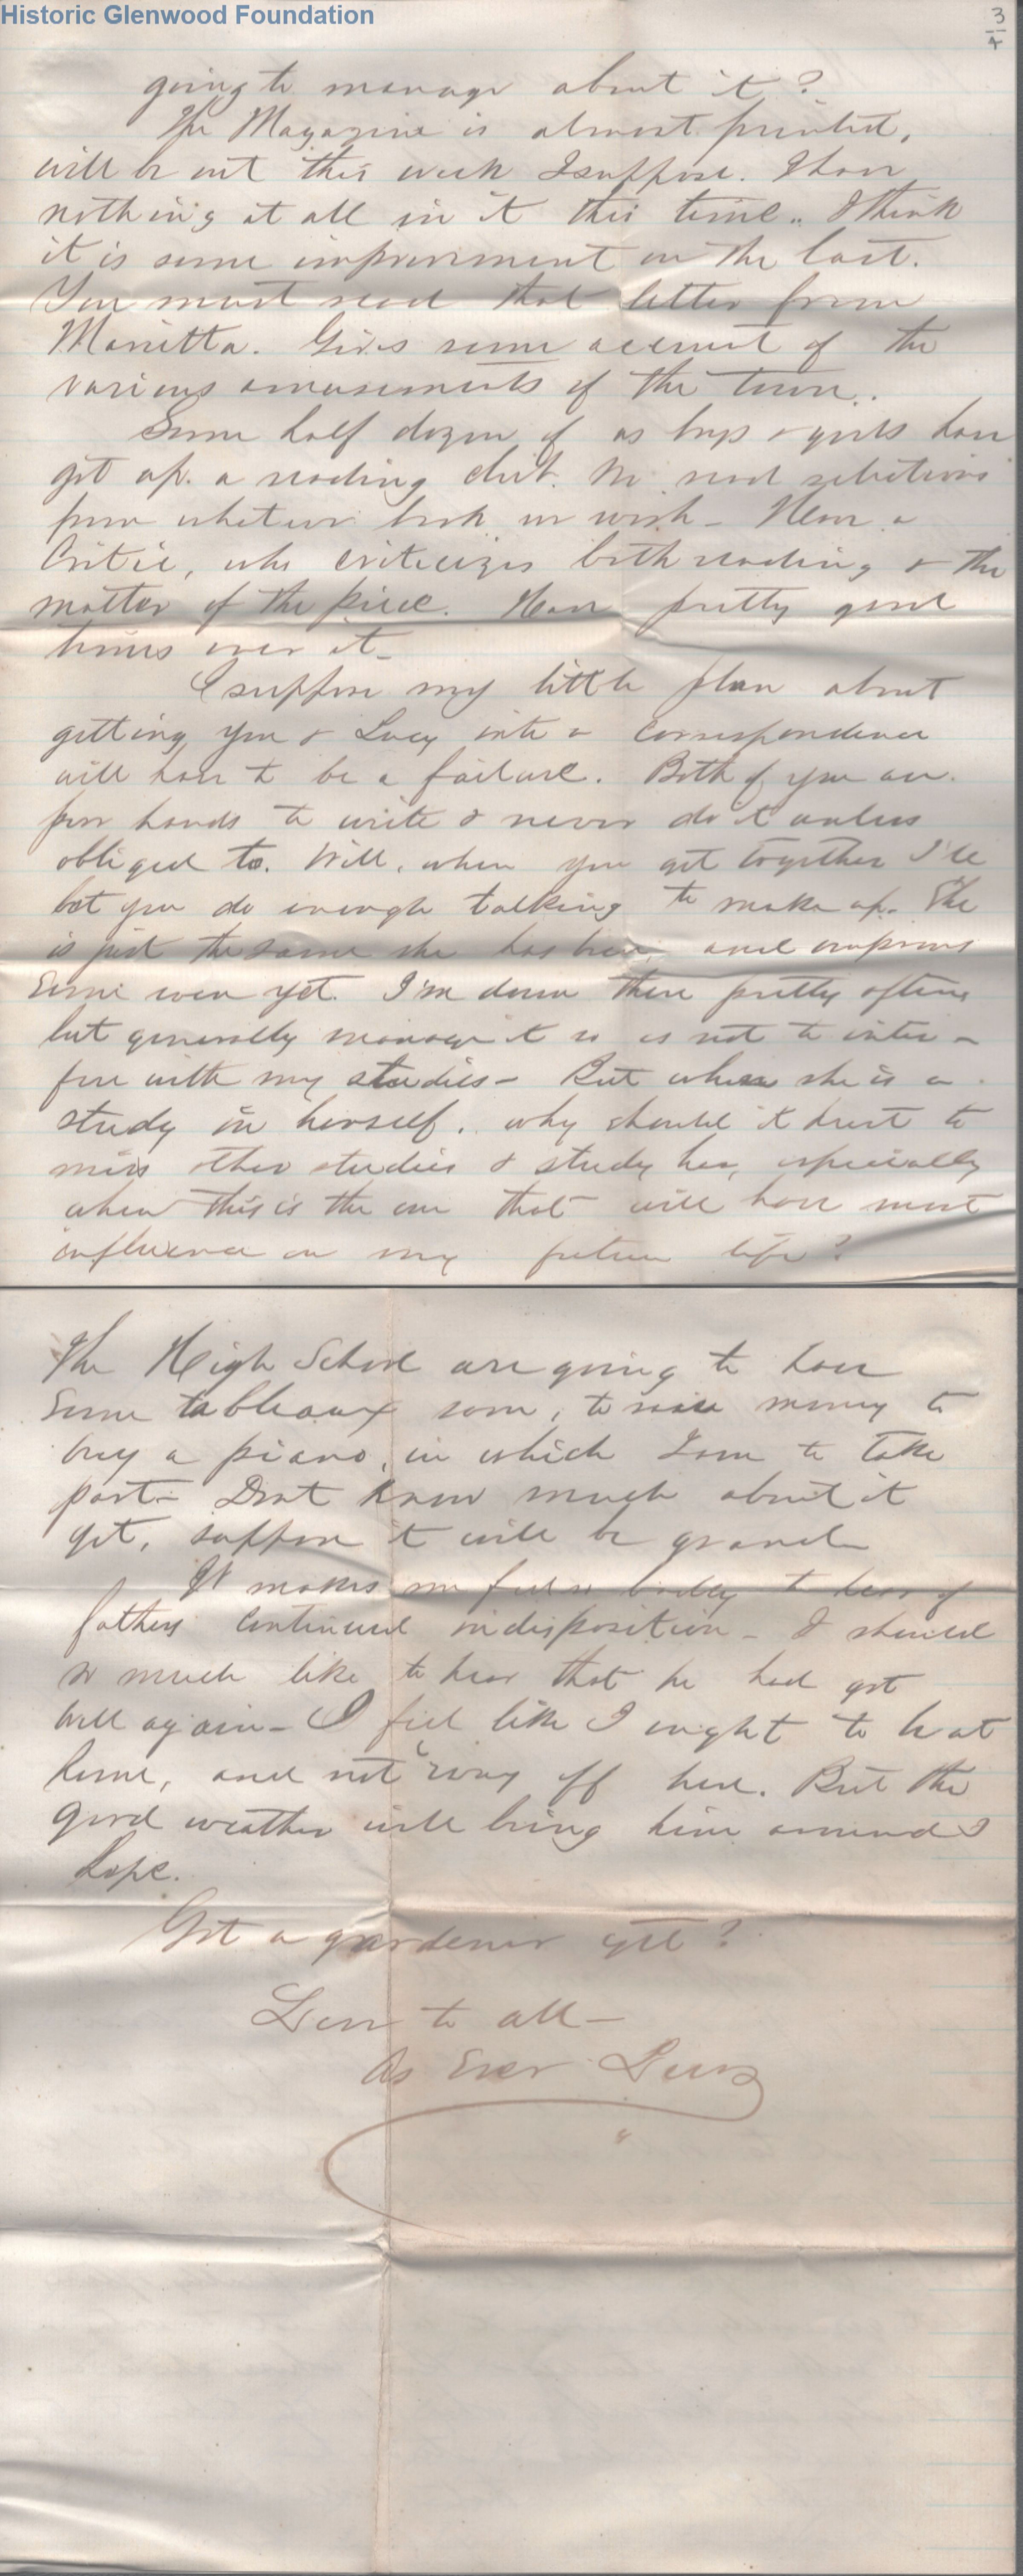 Historic Glenwood Foundation
3/4
going to manage about it?
The Magazine is almost printed,
will be out this week I suppose. I have
nothing at all in it this time.. I think
it is some improvement on the last.
You must read that letter from
Marietta. Gives some account of the
various amusements of the town..
Some half dozen of us boys & girls have
got up. a reading club. We read selections
from whatever book we wish - Have a
Critic, who criticizes both reading & the
matter of the piece. Have pretty good
times over it -
I suppose my little plan about
getting you & Lucy into a correspondence
will have to be a failure. Both of you are
poor hands to write & never do it unless
obliged to. Well, when you get together I'll
bet you do enough talking to make up. She
is just the same she has been, and improves
some even yet. I'm down there pretty often,
but generally manage it so as not to inter -
fere with my studies - But when she is a
study in herself, why should it hurt to
miss other studies & study her, especially
when this is the one that will have most
influence on my future life?
The High School are going to have
some tableaux soon, to raise money to
buy a piano, in which I am to take
part - Dont know much about it
yet, suppose it will be grand
It makes me feel so badly to hear of
fathers continued indisposition - I should
so much like to hear that he had got
well again - I feel like I ought to be at
home, and not 'way off here. But the
good weather will bring him around I
hope.
Got a gardener yet?
Love to all -
As Ever